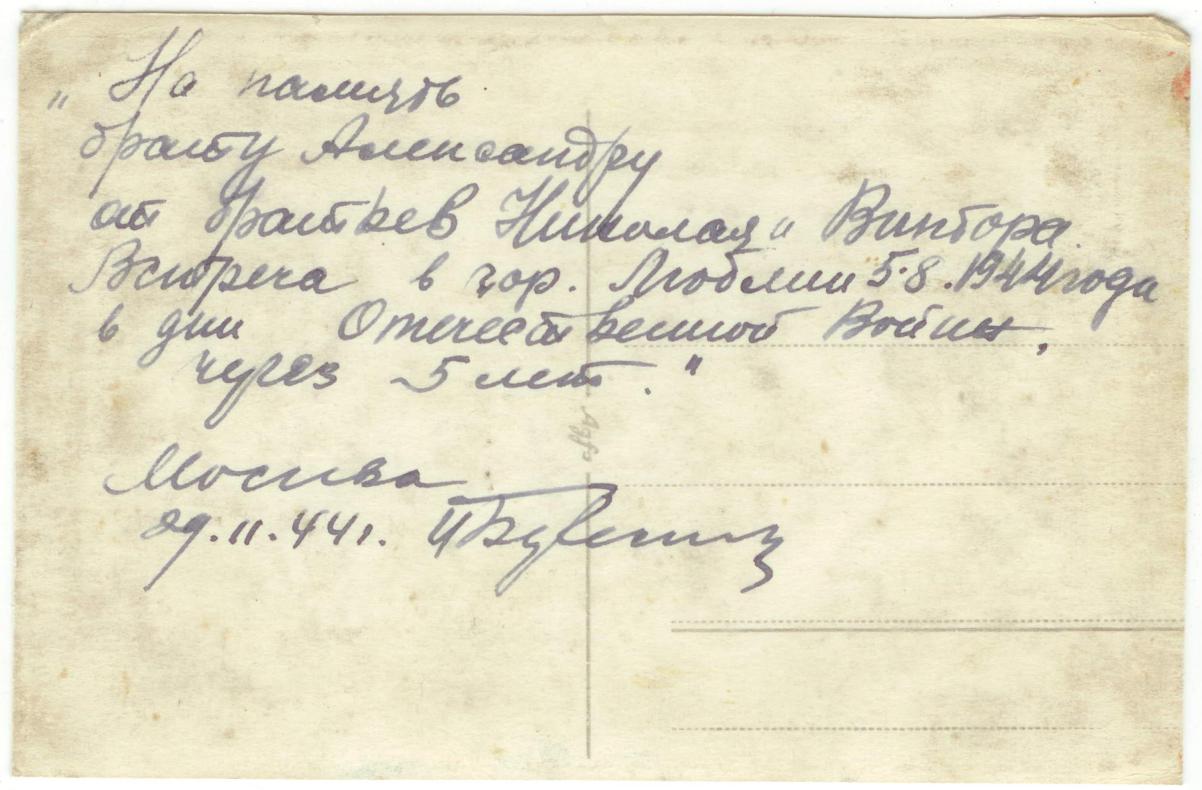 „На память
брату Александру
от братьев Николая и Виктора.
Встреча в гор. Люблин 5.8.1944 года
в дни Отечественной Войны,
через 5 лет."
Agfa
Москва
29.11.44г.